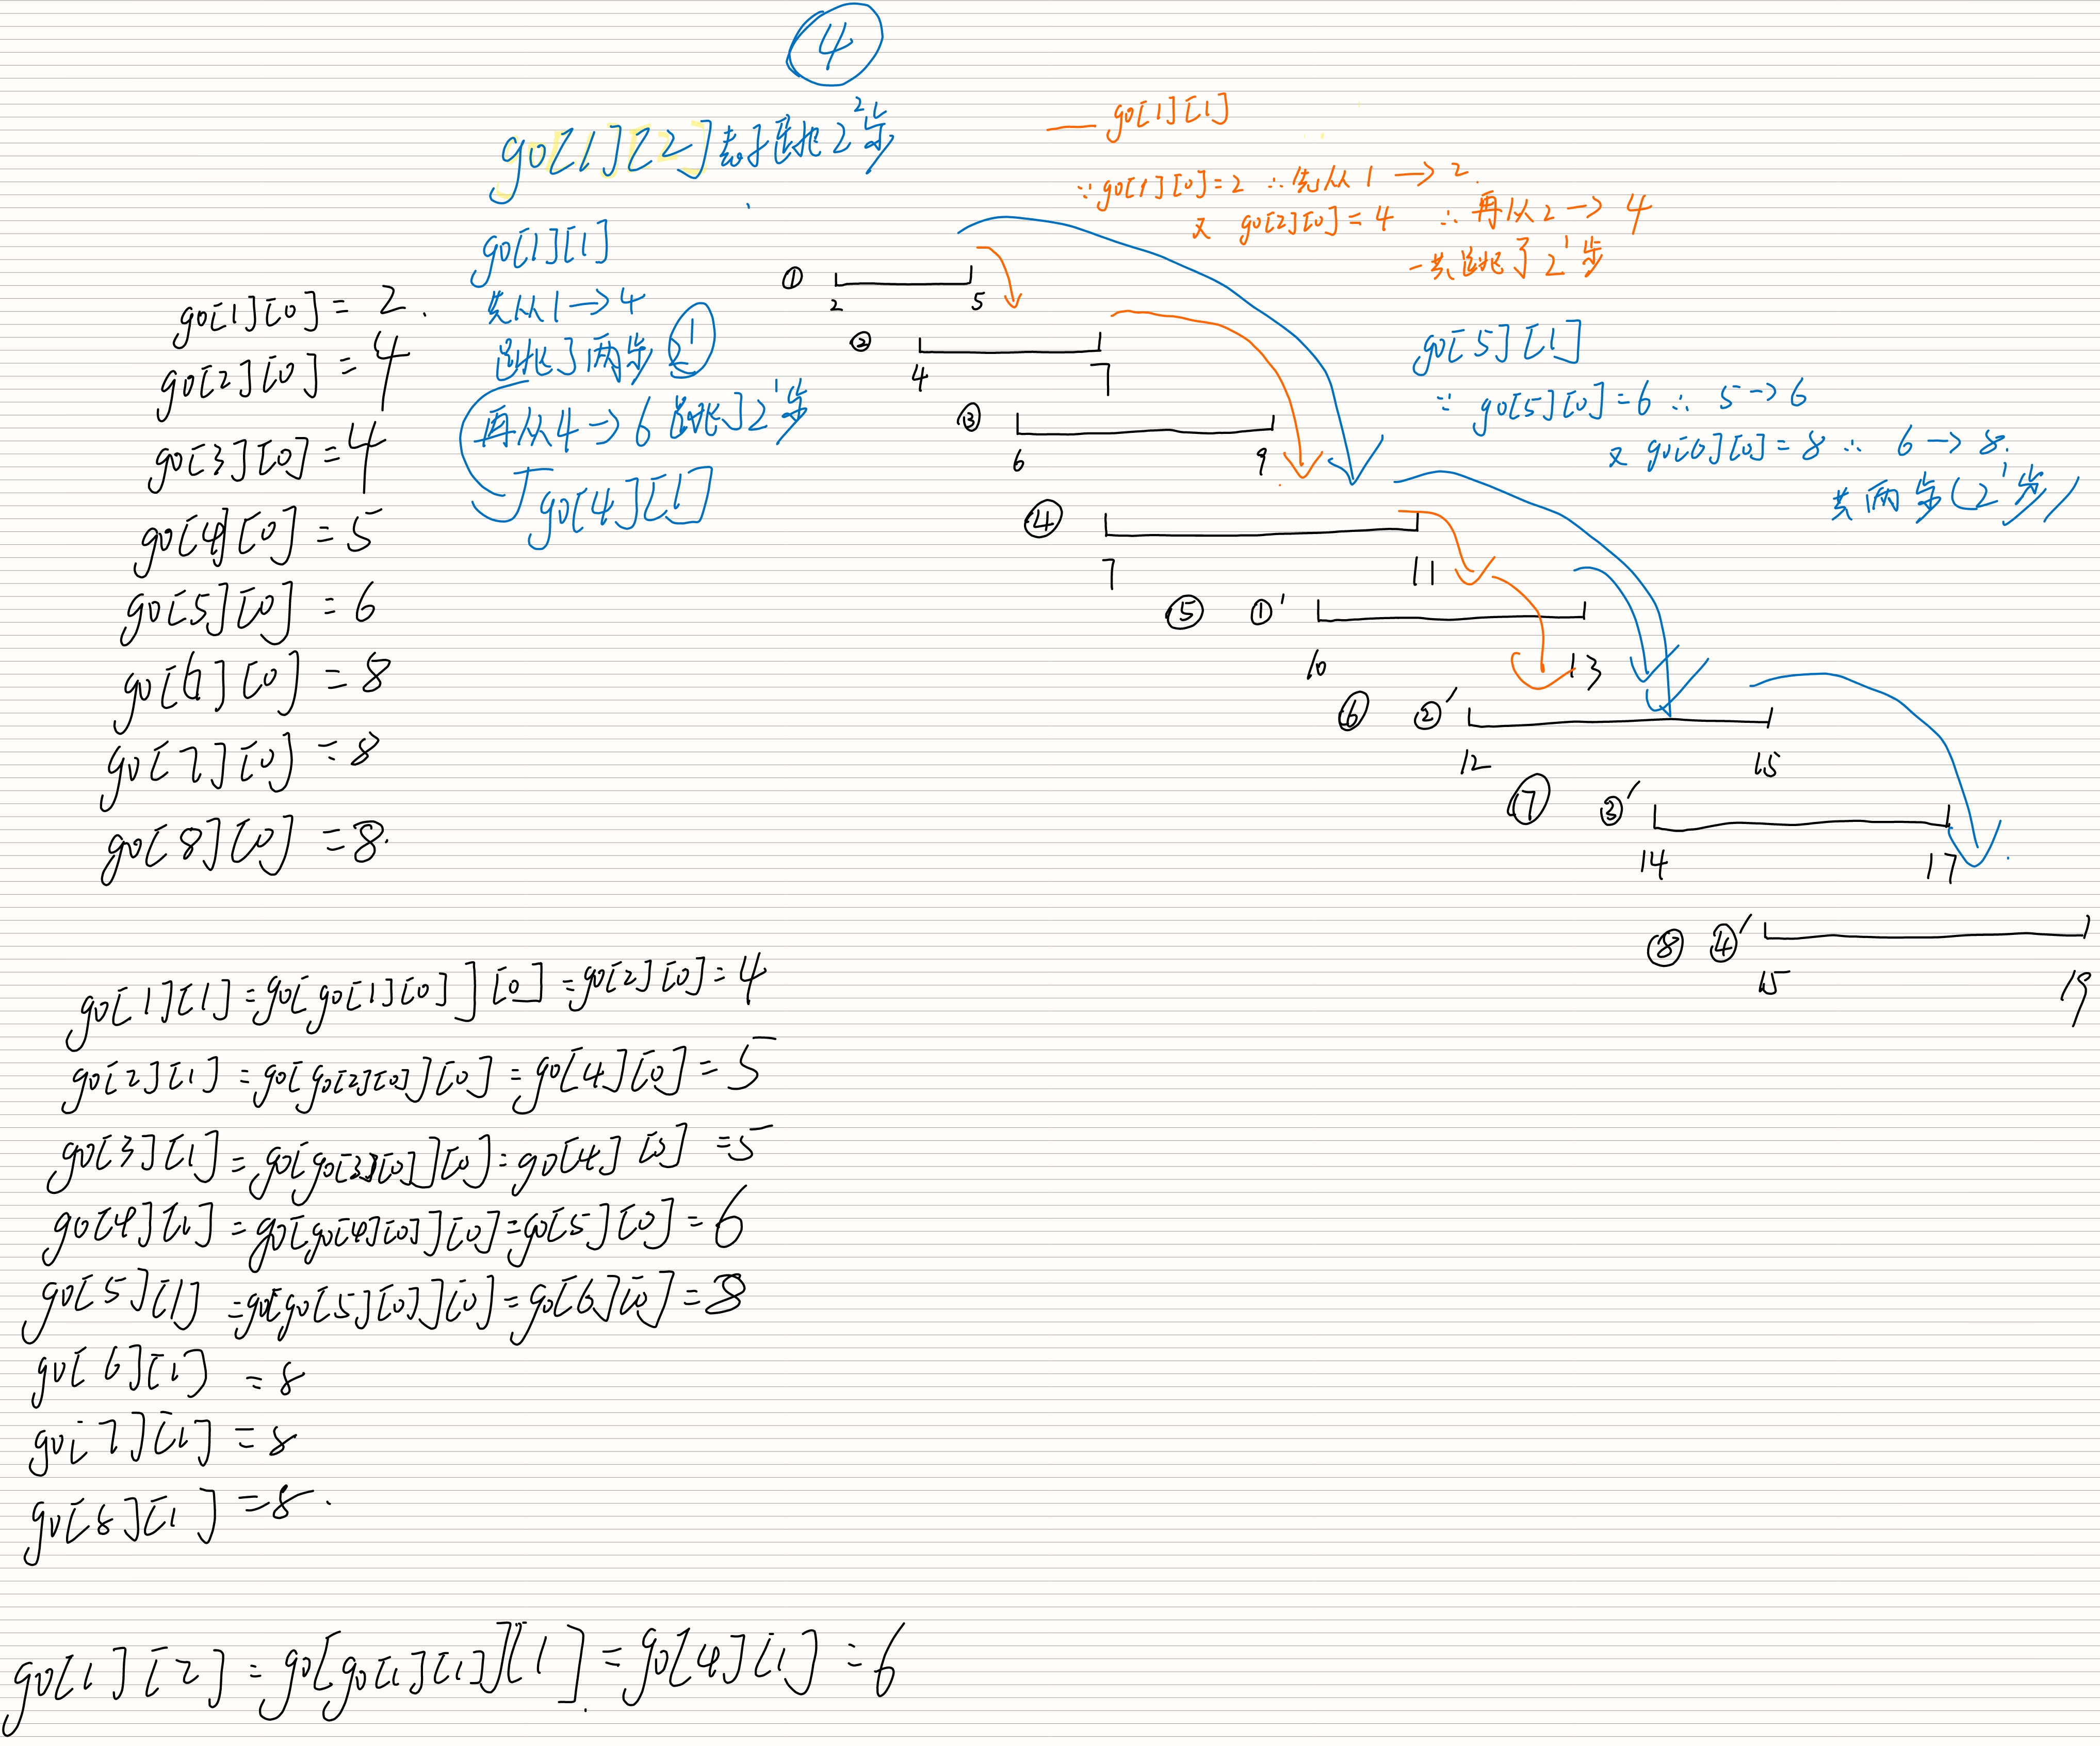 ④
go[1][2]表示跳2²步
—— go[1][1]
∵ go[1][0]=2 ∴先从1→2.
又 go[2][0]=4 ∴再从2→4
一共跳了2¹步
go[1][1]
先从1→4
跳了两步 2¹
再从4→6跳了2¹步
go[4][1]
go[5][1]
∵ go[5][0]=6 ∴ 5→6
又 go[6][0]=8 ∴ 6→8.
共两步(2¹步)
go[1][0]=2.
go[2][0]=4
go[3][0]=4
go[4][0]=5
go[5][0]=6
go[6][0]=8
go[7][0]=8
go[8][0]=8.
①
2 5
②
4 7
③
6 9
④
7 11
⑤ ①'
10 13
⑥ ②'
12 15
⑦ ③'
14 17
⑧ ④'
15 19
go[1][1]=go[go[1][0]][0]=go[2][0]=4
go[2][1]=go[go[2][0]][0]=go[4][0]=5
go[3][1]=go[go[3][0]][0]=go[4][0]=5
go[4][1]=go[go[4][0]][0]=go[5][0]=6
go[5][1]=go[go[5][0]][0]=go[6][0]=8
go[6][1]=8
go[7][1]=8
go[8][1]=8.
go[1][2]=go[go[1][1]][1]=go[4][1]=6